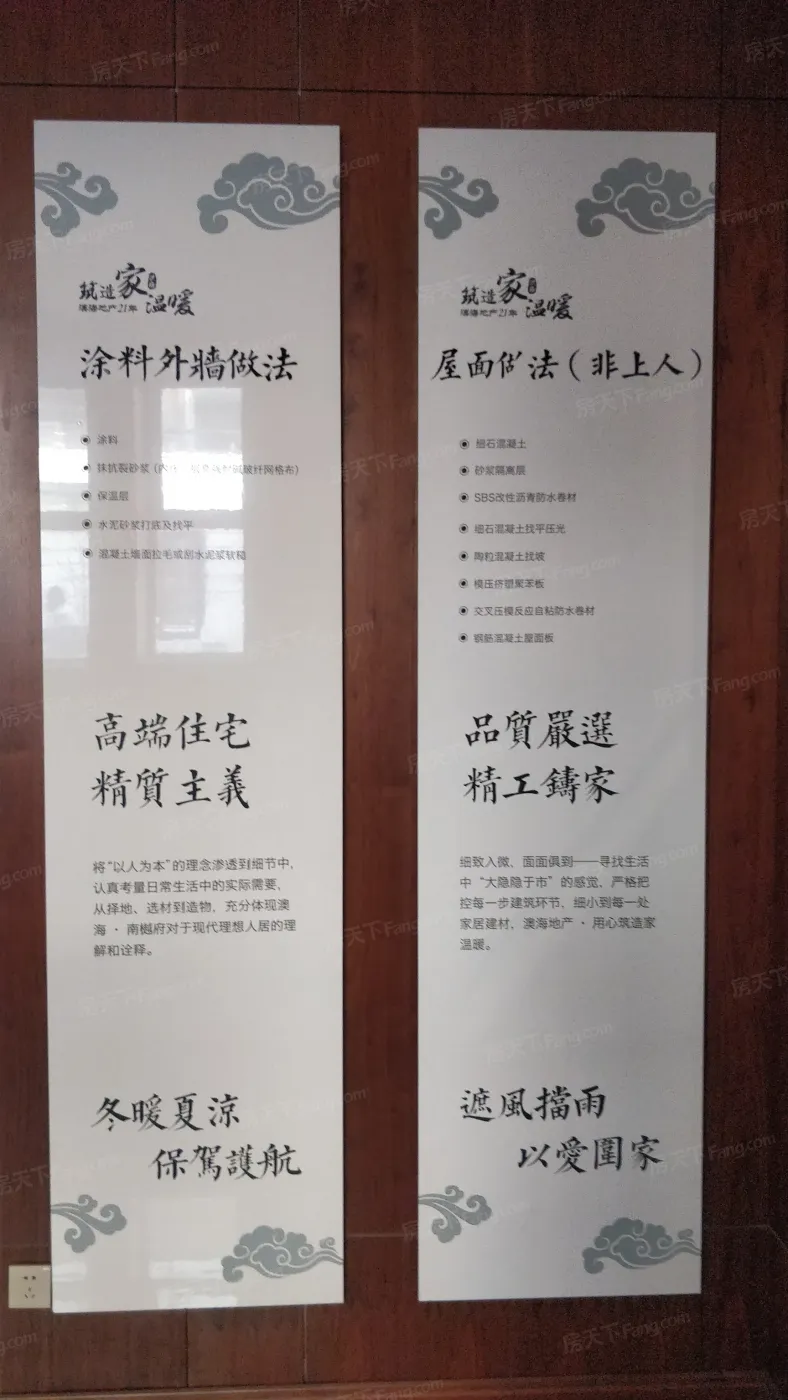 筑造家
温暖
澳海地产21年
涂料外牆做法
涂料
抹抗裂砂浆
玻纤网格布）
保温层
水泥砂浆打底及找平
混凝土墙面拉毛或刮水泥浆软糙
高端住宅
精質主義
将“以人为本”的理念渗透到细节中,
认真考量日常生活中的实际需要、
从择地、选材到造物，充分体现澳
海 · 南樾府对于现代理想人居的理
解和诠释。
冬暖夏涼
保駕護航
筑造家
温暖
澳海地产21年
屋面做法（非上人）
细石混凝土
砂浆隔离层
SBS改性沥青防水卷材
细石混凝土找平压光
陶粒混凝土找坡
模压挤塑聚苯板
交叉压模反应自粘防水卷材
钢筋混凝土屋面板
品質嚴選
精工鑄家
细致入微、面面俱到——寻找生活
中“大隐隐于市”的感觉，严格把
控每一步建筑环节，细小到每一处
家居建材，澳海地产 · 用心筑造家
温暖。
遮風擋雨
以愛圍家
房天下Fang.com